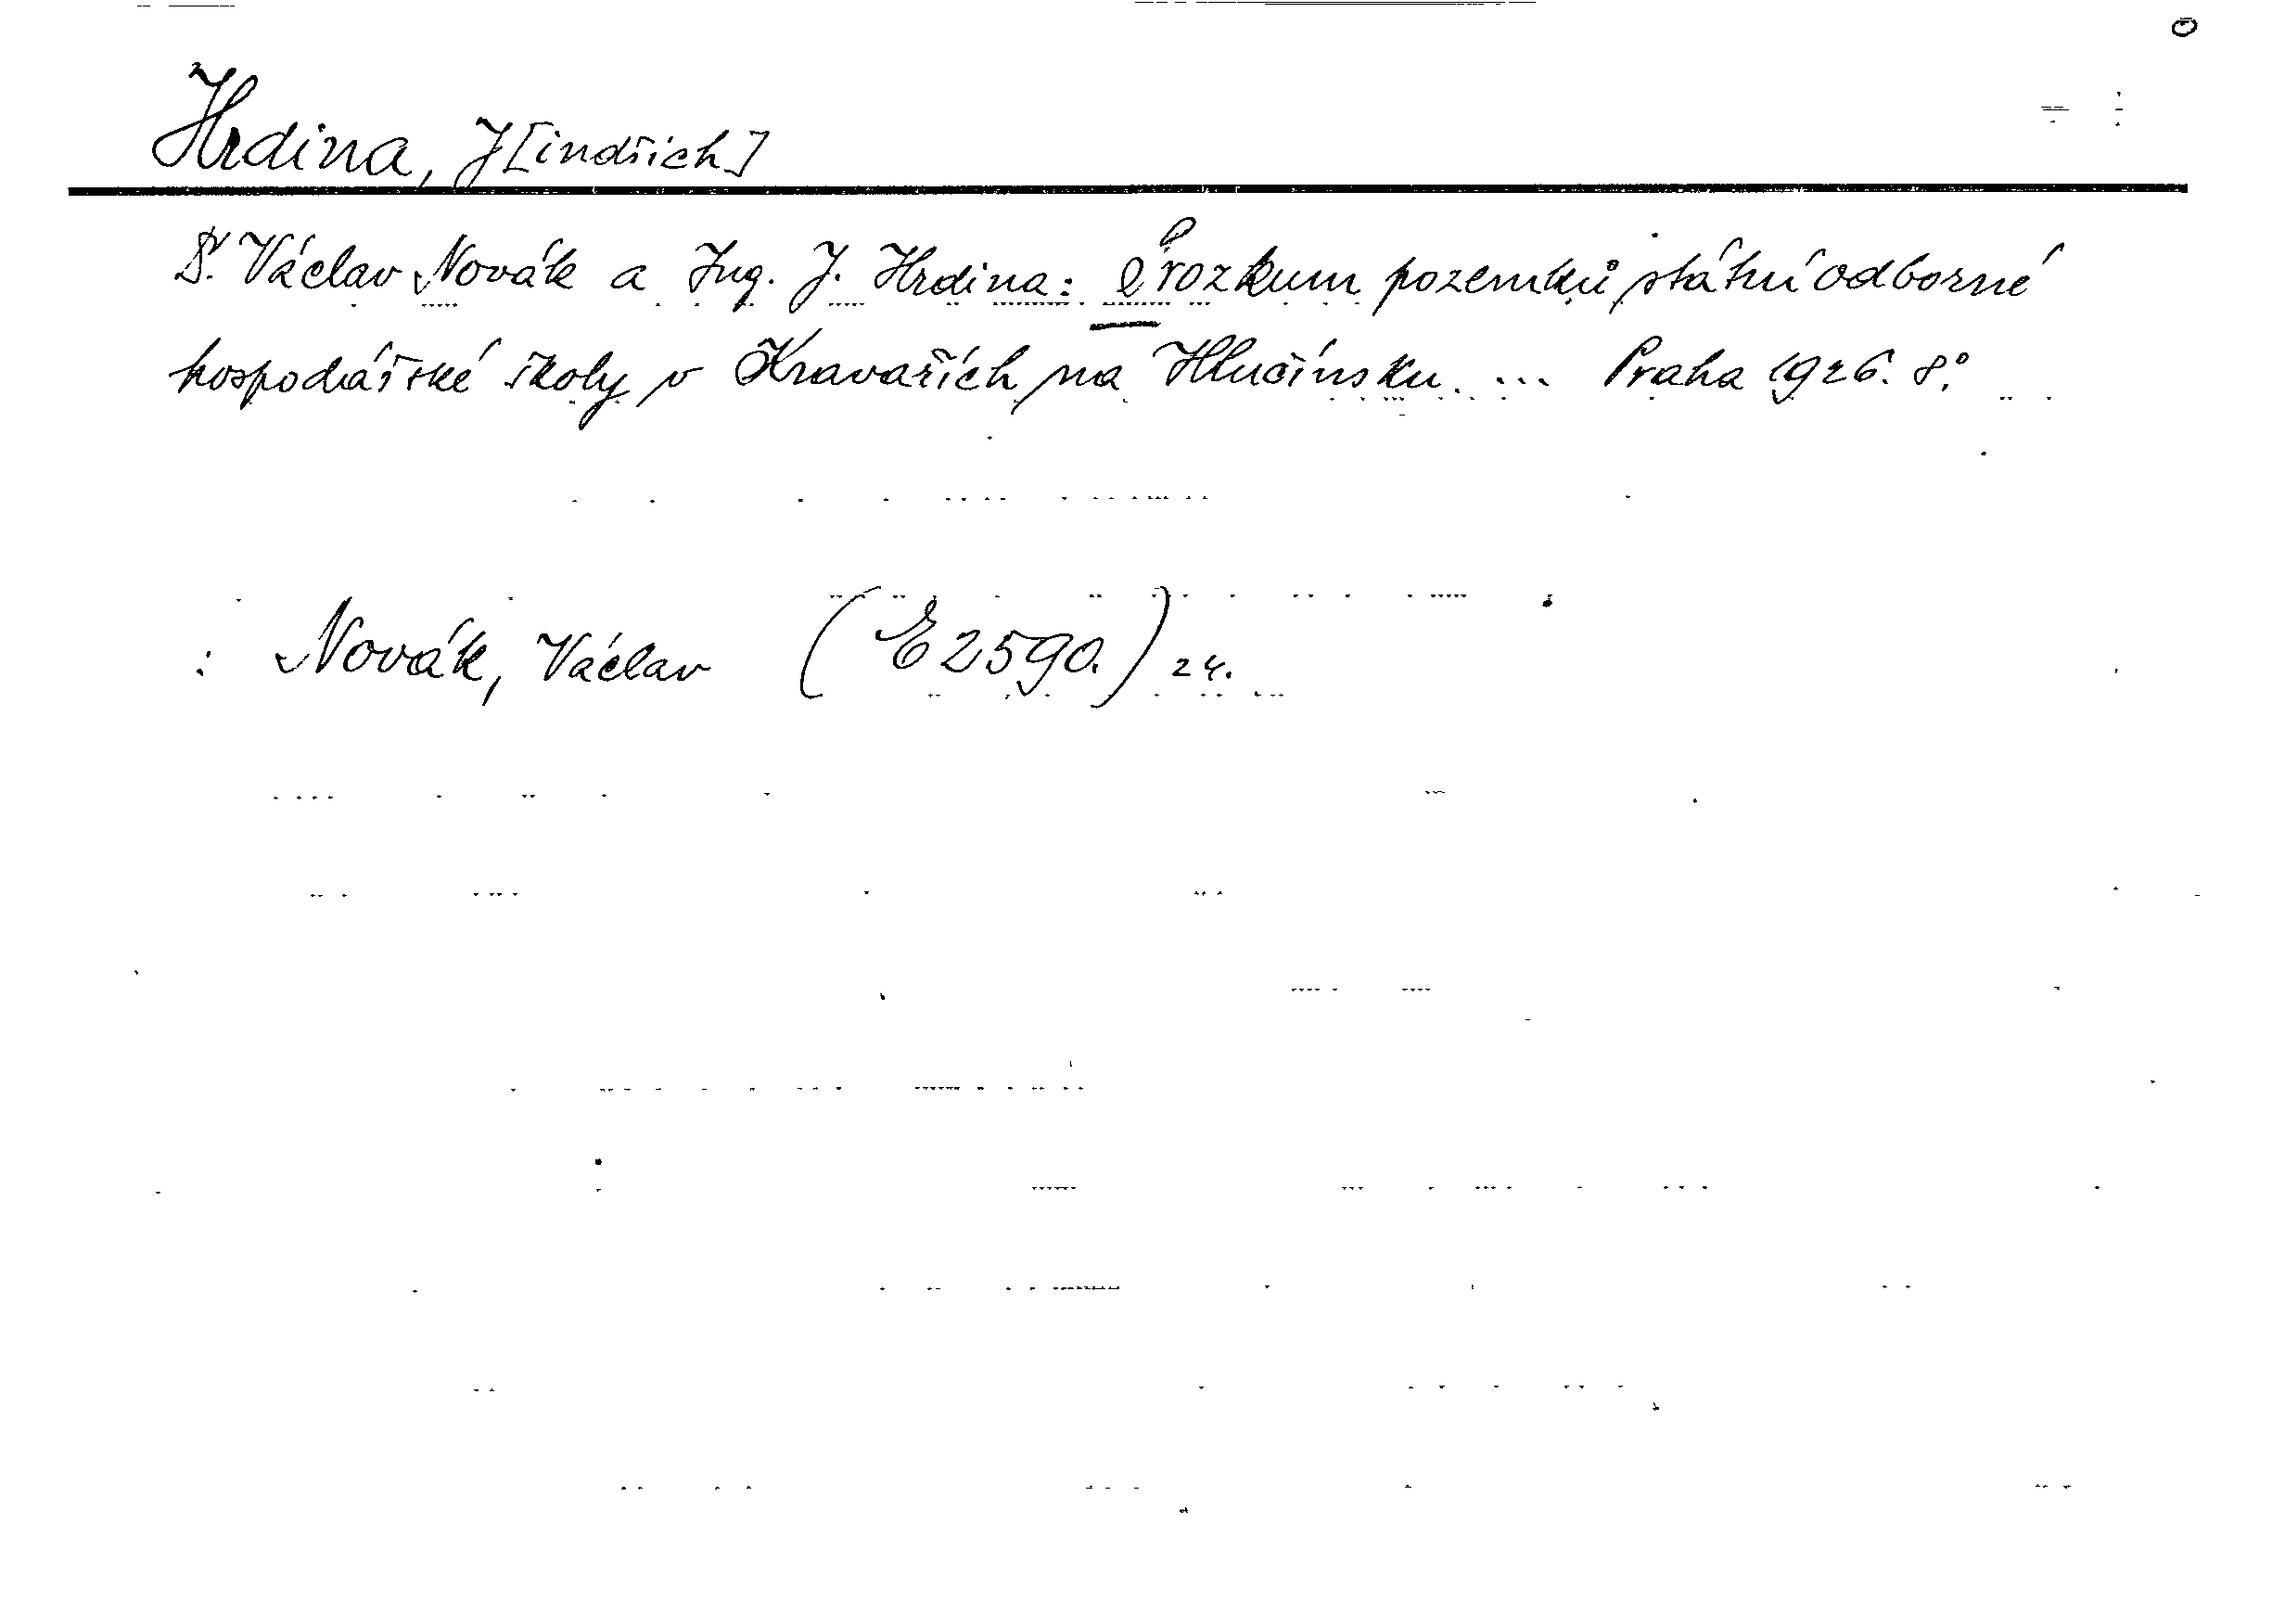 Hrdina, J[indřich]
Dr. Václav Novák a Ing. J. Hrdina: Průzkum pozemků státní odborné
hospodářské školy v Kravařích na Hlučínsku. ... Praha 1926. 8°.
: Novák, Václav (E 2590.) 24.